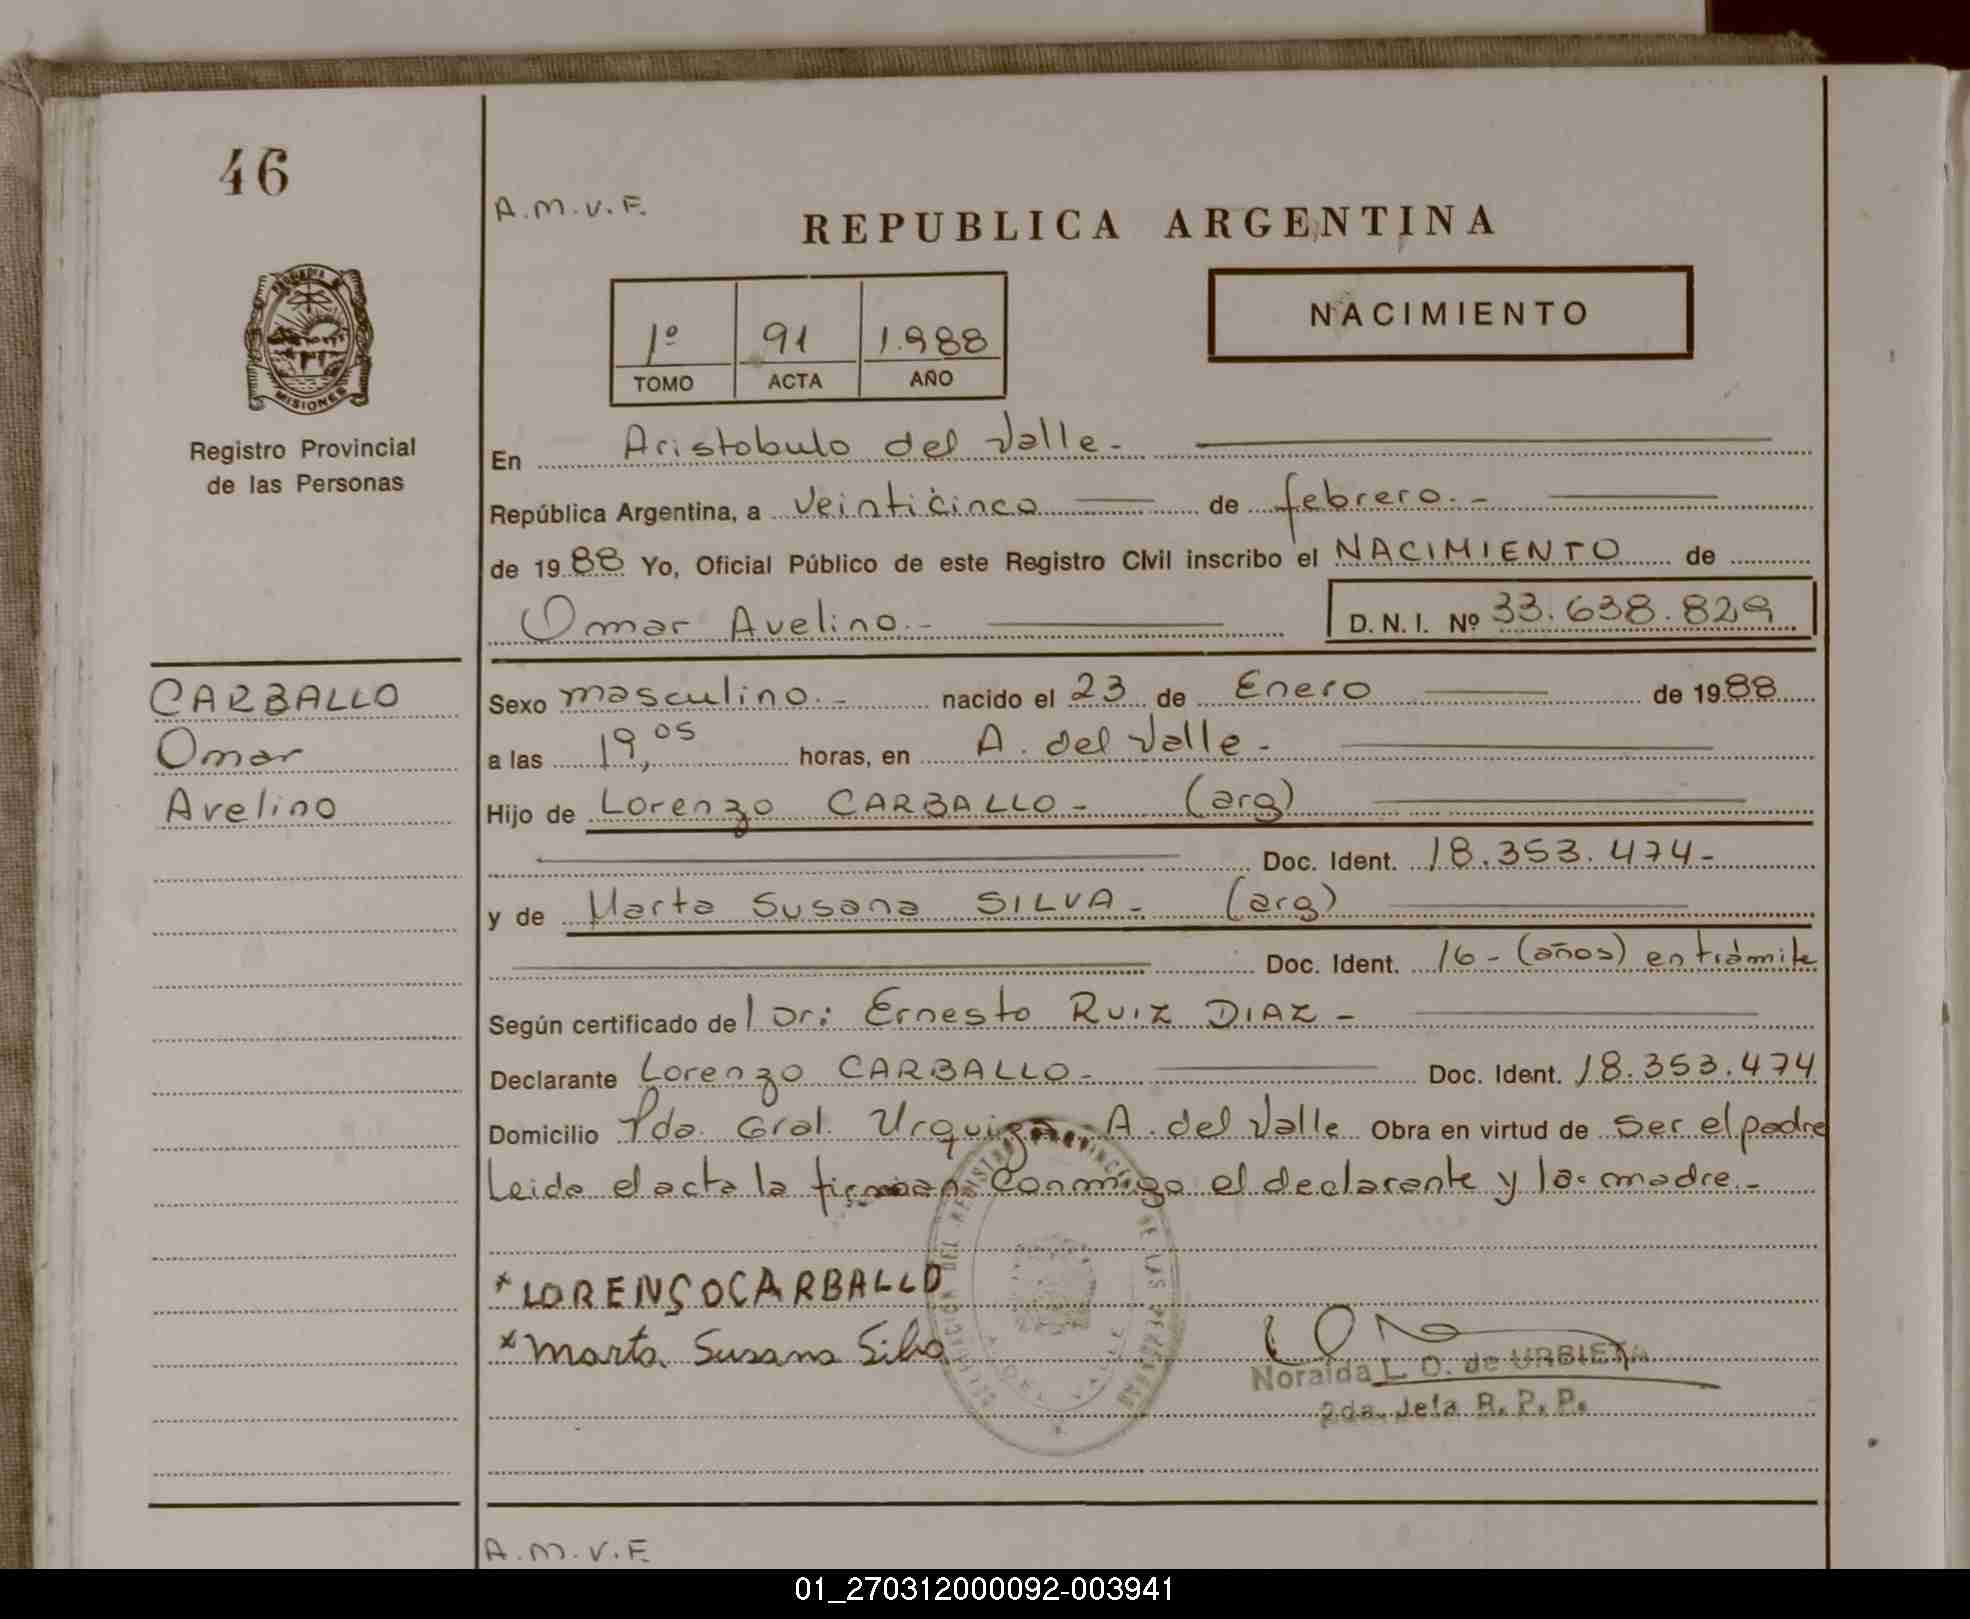 46
A.M.V.F.
REPUBLICA ARGENTINA
1º 91 1.988
TOMO ACTA AÑO
NACIMIENTO
PROVINCIA DE
MISIONES
Registro Provincial
de las Personas
En Aristobulo del Valle.-
República Argentina, a Veinticinco de febrero.-
de 1988 Yo, Oficial Público de este Registro Civil inscribo el NACIMIENTO de
Omar Avelino.- D. N. I. Nº 33.638.829
CARBALLO
Omar
Avelino
Sexo masculino.- nacido el 23 de Enero de 1988
a las 19,05 horas, en A. del Valle.-
Hijo de Lorenzo CARBALLO - (arg)
Doc. Ident. 18.353.474-
y de Marta Susana SILVA - (arg)
Doc. Ident. 16 - (años) en trámite
Según certificado del Dr: Ernesto RUIZ DIAZ -
Declarante Lorenzo CARBALLO - Doc. Ident. 18.353.474
Domicilio Pda. Gral. Urquiza A. del Valle Obra en virtud de Ser el padre
Leida el acta la firman Conmigo el declarante y la madre.-
* LORENSO CARBALLO
* Marta Susana Silva
DELEGACION DEL REGISTRO PROVINCIAL DE LAS PERSONAS
Noraida L. O. de URBIETA
2da. Jefa R. P. P.
A.M.V.F
01_270312000092-003941